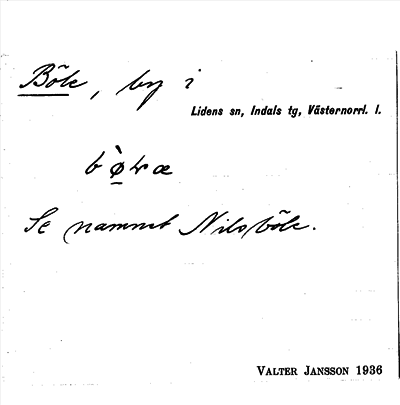 Böle, by i
Lidens sn, Indals tg, Västernorrl. l.
Se namnet Nilsböle.
VALTER JANSSON 1936